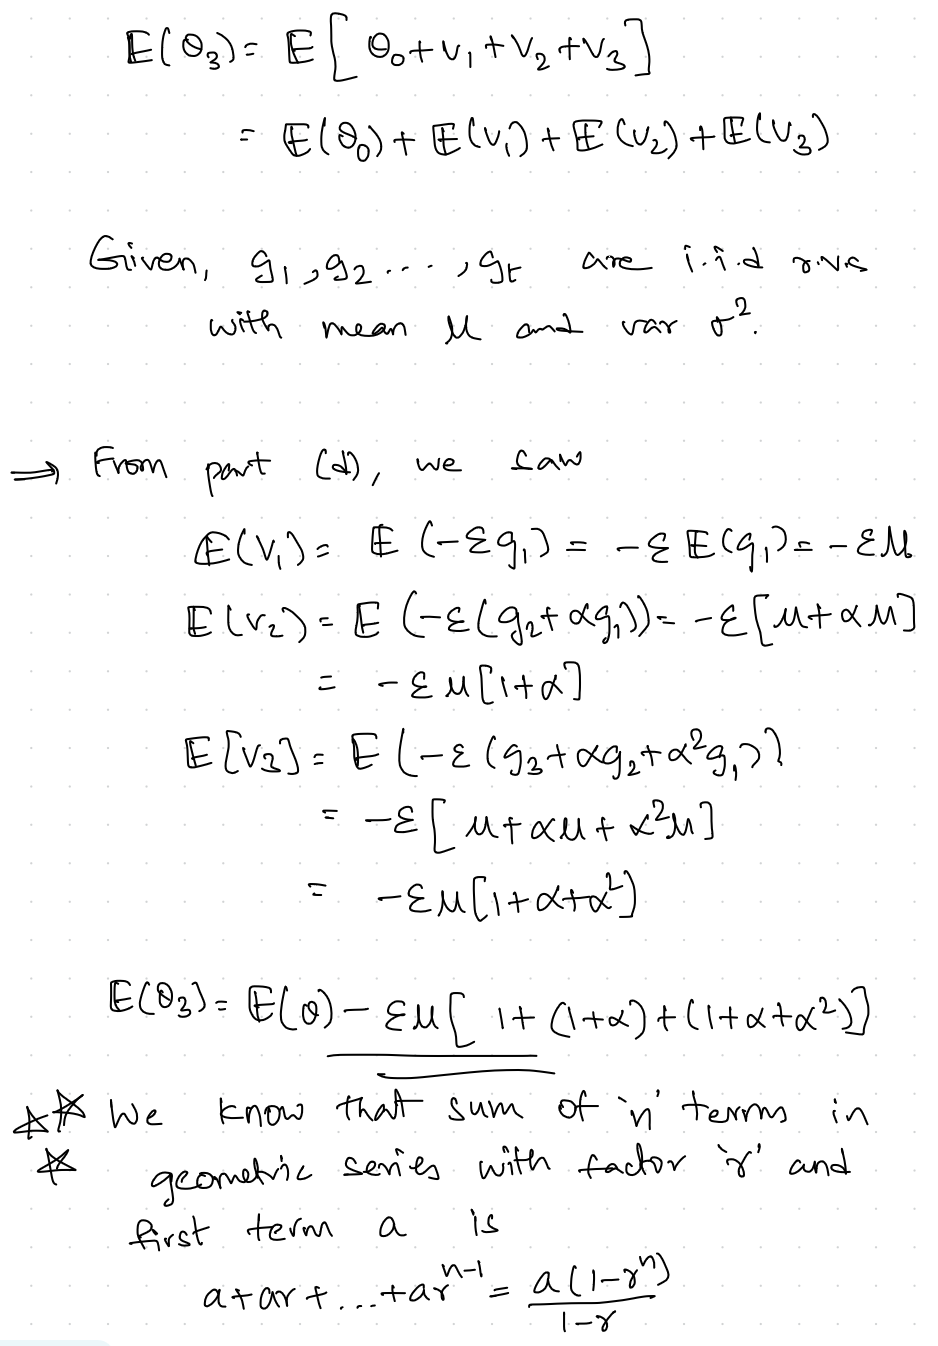 𝔼(θ₃) = 𝔼[θ₀+v₁+v₂+v₃]
= 𝔼(θ₀) + 𝔼(v₁) + 𝔼(v₂) + 𝔼(v₃)
Given, g₁, g₂ ..., gₜ are i.i.d r.v.s
with mean μ and var σ².
⇒ From part (d), we saw
𝔼(v₁) = 𝔼(-εg₁) = -ε𝔼(g₁) = -εμ
𝔼(v₂) = 𝔼(-ε(g₂+αg₁)) = -ε[μ+αμ]
= -εμ[1+α]
𝔼[v₃] = 𝔼(-ε(g₃+αg₂+α²g₁))
= -ε[μ+αμ+α²μ]
= -εμ[1+α+α²)
𝔼(θ₃) = 𝔼(θ) - εμ[1+(1+α)+(1+α+α²)]
☆☆ We know that sum of 'n' terms in
☆ geometric series with factor 'r' and
first term a is
a+ar+...+arⁿ⁻¹ = a(1-rⁿ)/1-r